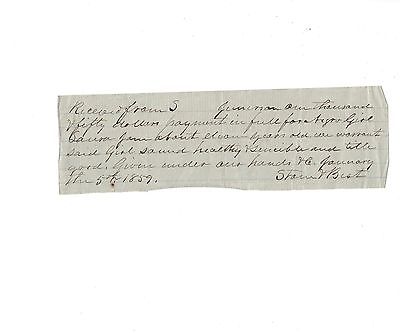 Recev d from S Jemerson one thousand
& fifty dollars payment in full for a Negro Girl
Laura Jane about eleven years old we warrant
said girl sound healthy & sencible and title
good. Given under our hands &c January
the 5th 1859. Stone & Best